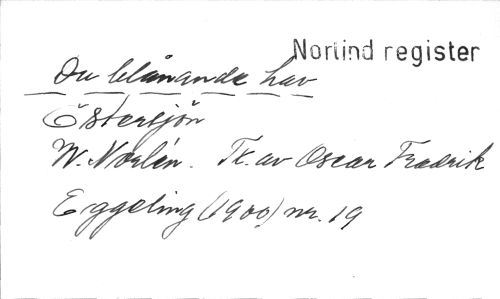 Nortind register
Du blånande hav
Östersjön
W. Norlén. Tt. av Oscar Fredrik
Eggeling (1900) nr. 19